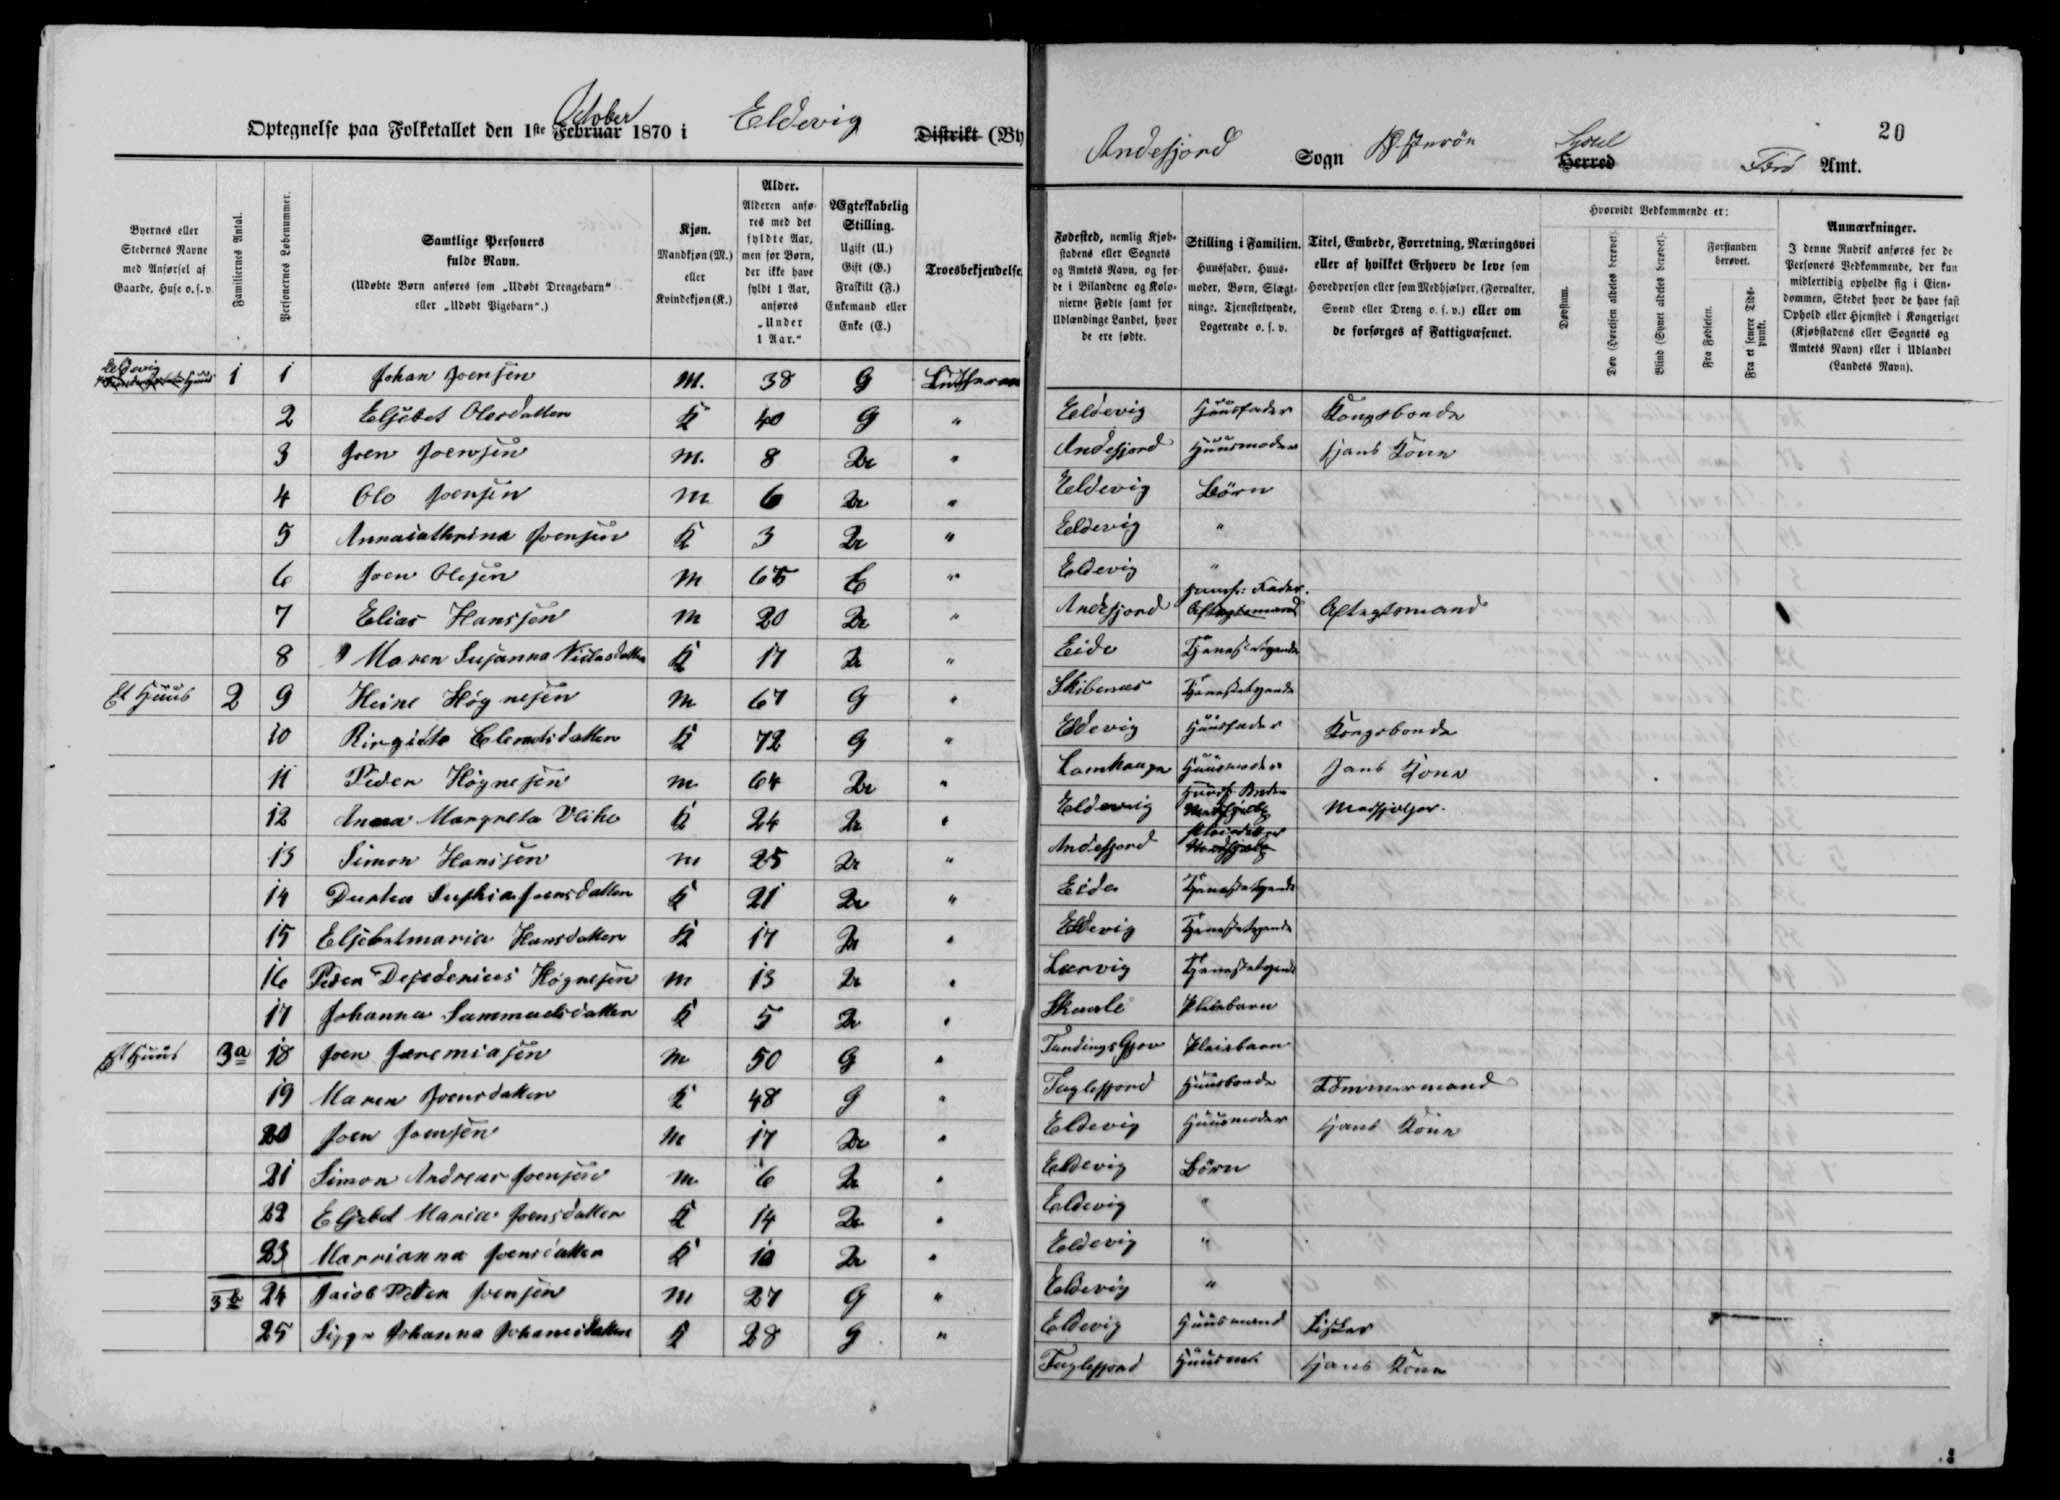 October
Optegnelse paa Folketallet den 1ste Februar 1870 i Eldevig Distrikt (By
Byernes eller Stedernes Navne med Anførsel af Gaarde, Huse o. s. v.
Familiernes Antal.
Personernes Løbenummer.
Samtlige Personers fulde Navn.
(Udøbte Børn anføres som „Udøbt Drengebarn“ eller „Udøbt Pigebarn“.)
Kjøn.
Mandkjøn (M.) eller Kvindekjøn (K.)
Alder.
Alderen anføres med det fyldte Aar, men for Børn, der ikke have fyldt 1 Aar, anføres „Under 1 Aar.“
Ægteskabelig Stilling.
Ugift (U.) Gift (G.) Fraskilt (F.) Enkemand eller Enke (E.)
Troesbekjendelse
Eldevig Huus 1 1 Johan Joensen M. 38 G Lutheran
2 Elsebet Olesdatter K 40 G "
3 Joen Joensen M. 8 U "
4 Ole Joensen M 6 U "
5 Annacathrina Joensen K 3 U "
6 Joen Olesen M 65 E "
7 Elias Hanssen M 20 U "
8 Maren Susanna Niclasdatter K 17 U "
Et Huus 2 9 Heine Høgnesen M 67 G "
10 Birgitte Clemetsdatter K 72 G "
11 Peder Høgnesen M 64 U "
12 Anna Margreta K 24 U "
13 Simon Hansen M 25 U "
14 Durhea Suphia Joensdatter K 21 U "
15 Elsebetmaria Hansdatter K 17 U "
16 Peder Desederius Høgnesen M 13 U "
17 Johanna Sammuelsdatter K 5 U "
Et Huus 3a 18 Joen Jeremiasen M 50 G "
19 Maren Joensdatter K 48 G "
20 Joen Joensen M 17 U "
21 Simon Andreas Joensen M 6 U "
22 Elsebet Maria Joensdatter K 14 U "
23 Marrianna Joensdatter K 10 U "
3b 24 Jacob Peter Joensen M 27 G "
25 Johanna Johanesdatter K 28 G "
20
Andefjord Sogn Østerön Syssel Herred Færö Amt.
Fødested, nemlig Kjøbstadens eller Sognets og Amtets Navn, og for de i Bilandene og Kolonierne Fødte samt for Udlændinge Landet, hvor de ere fødte.
Stilling i Familien.
Huusfader, Huusmoder, Børn, Slægtninge, Tjenestetyende, Logerende o. s. v.
Titel, Embede, Forretning, Næringsvei eller af hvilket Erhverv de leve som Hovedperson eller som Medhjælper, (Forvalter, Svend eller Dreng o. s. v.) eller om de forsørges af Fattigvæsenet.
Hvorvidt Vedkommende er:
Døvstum.
Døv (Hørelsen aldeles berøvet).
Blind (Synet aldeles berøvet).
Forstanden berøvet.
Fra Fødselen.
Fra et senere Tidspunkt.
Anmærkninger.
I denne Rubrik anføres for de Personers Vedkommende, der kun midlertidig opholde sig i Eiendommen, Stedet hvor de have fast Ophold eller Hjemsted i Kongeriget (Kjøbstadens eller Sognets og Amtets Navn) eller i Udlandet (Landets Navn).
Eldevig Huusfader Kongsbonde
Andefjord Huusmoder Hans Kone
Eldevig Börn
Eldevig "
Eldevig "
Andefjord Huusf: Fader. Aftægtsmand Aftægtsmand
Eide Tjenestetyende
Skibenæs Tjenestetyende
Eldevig Huusfader Kongsbonde
Lamhauge Huusmoder Hans Kone
Eldevig Huusf: Broder Medhjelper.
Andefjord Pleiedatter
Eide Tjenestetyende
Eldevig Tjenestetyende
Lervig Tjenestetyende
Skaale Pleiebarn
Pleiebarn
Fuglefjord Huusbonde Tömmermand
Eldevig Huusmoder Hans Kone
Eldevig Börn
Eldevig "
Eldevig "
Eldevig "
Eldevig Huusmand Fisker
Fuglefjord Huusm. Hans Kone